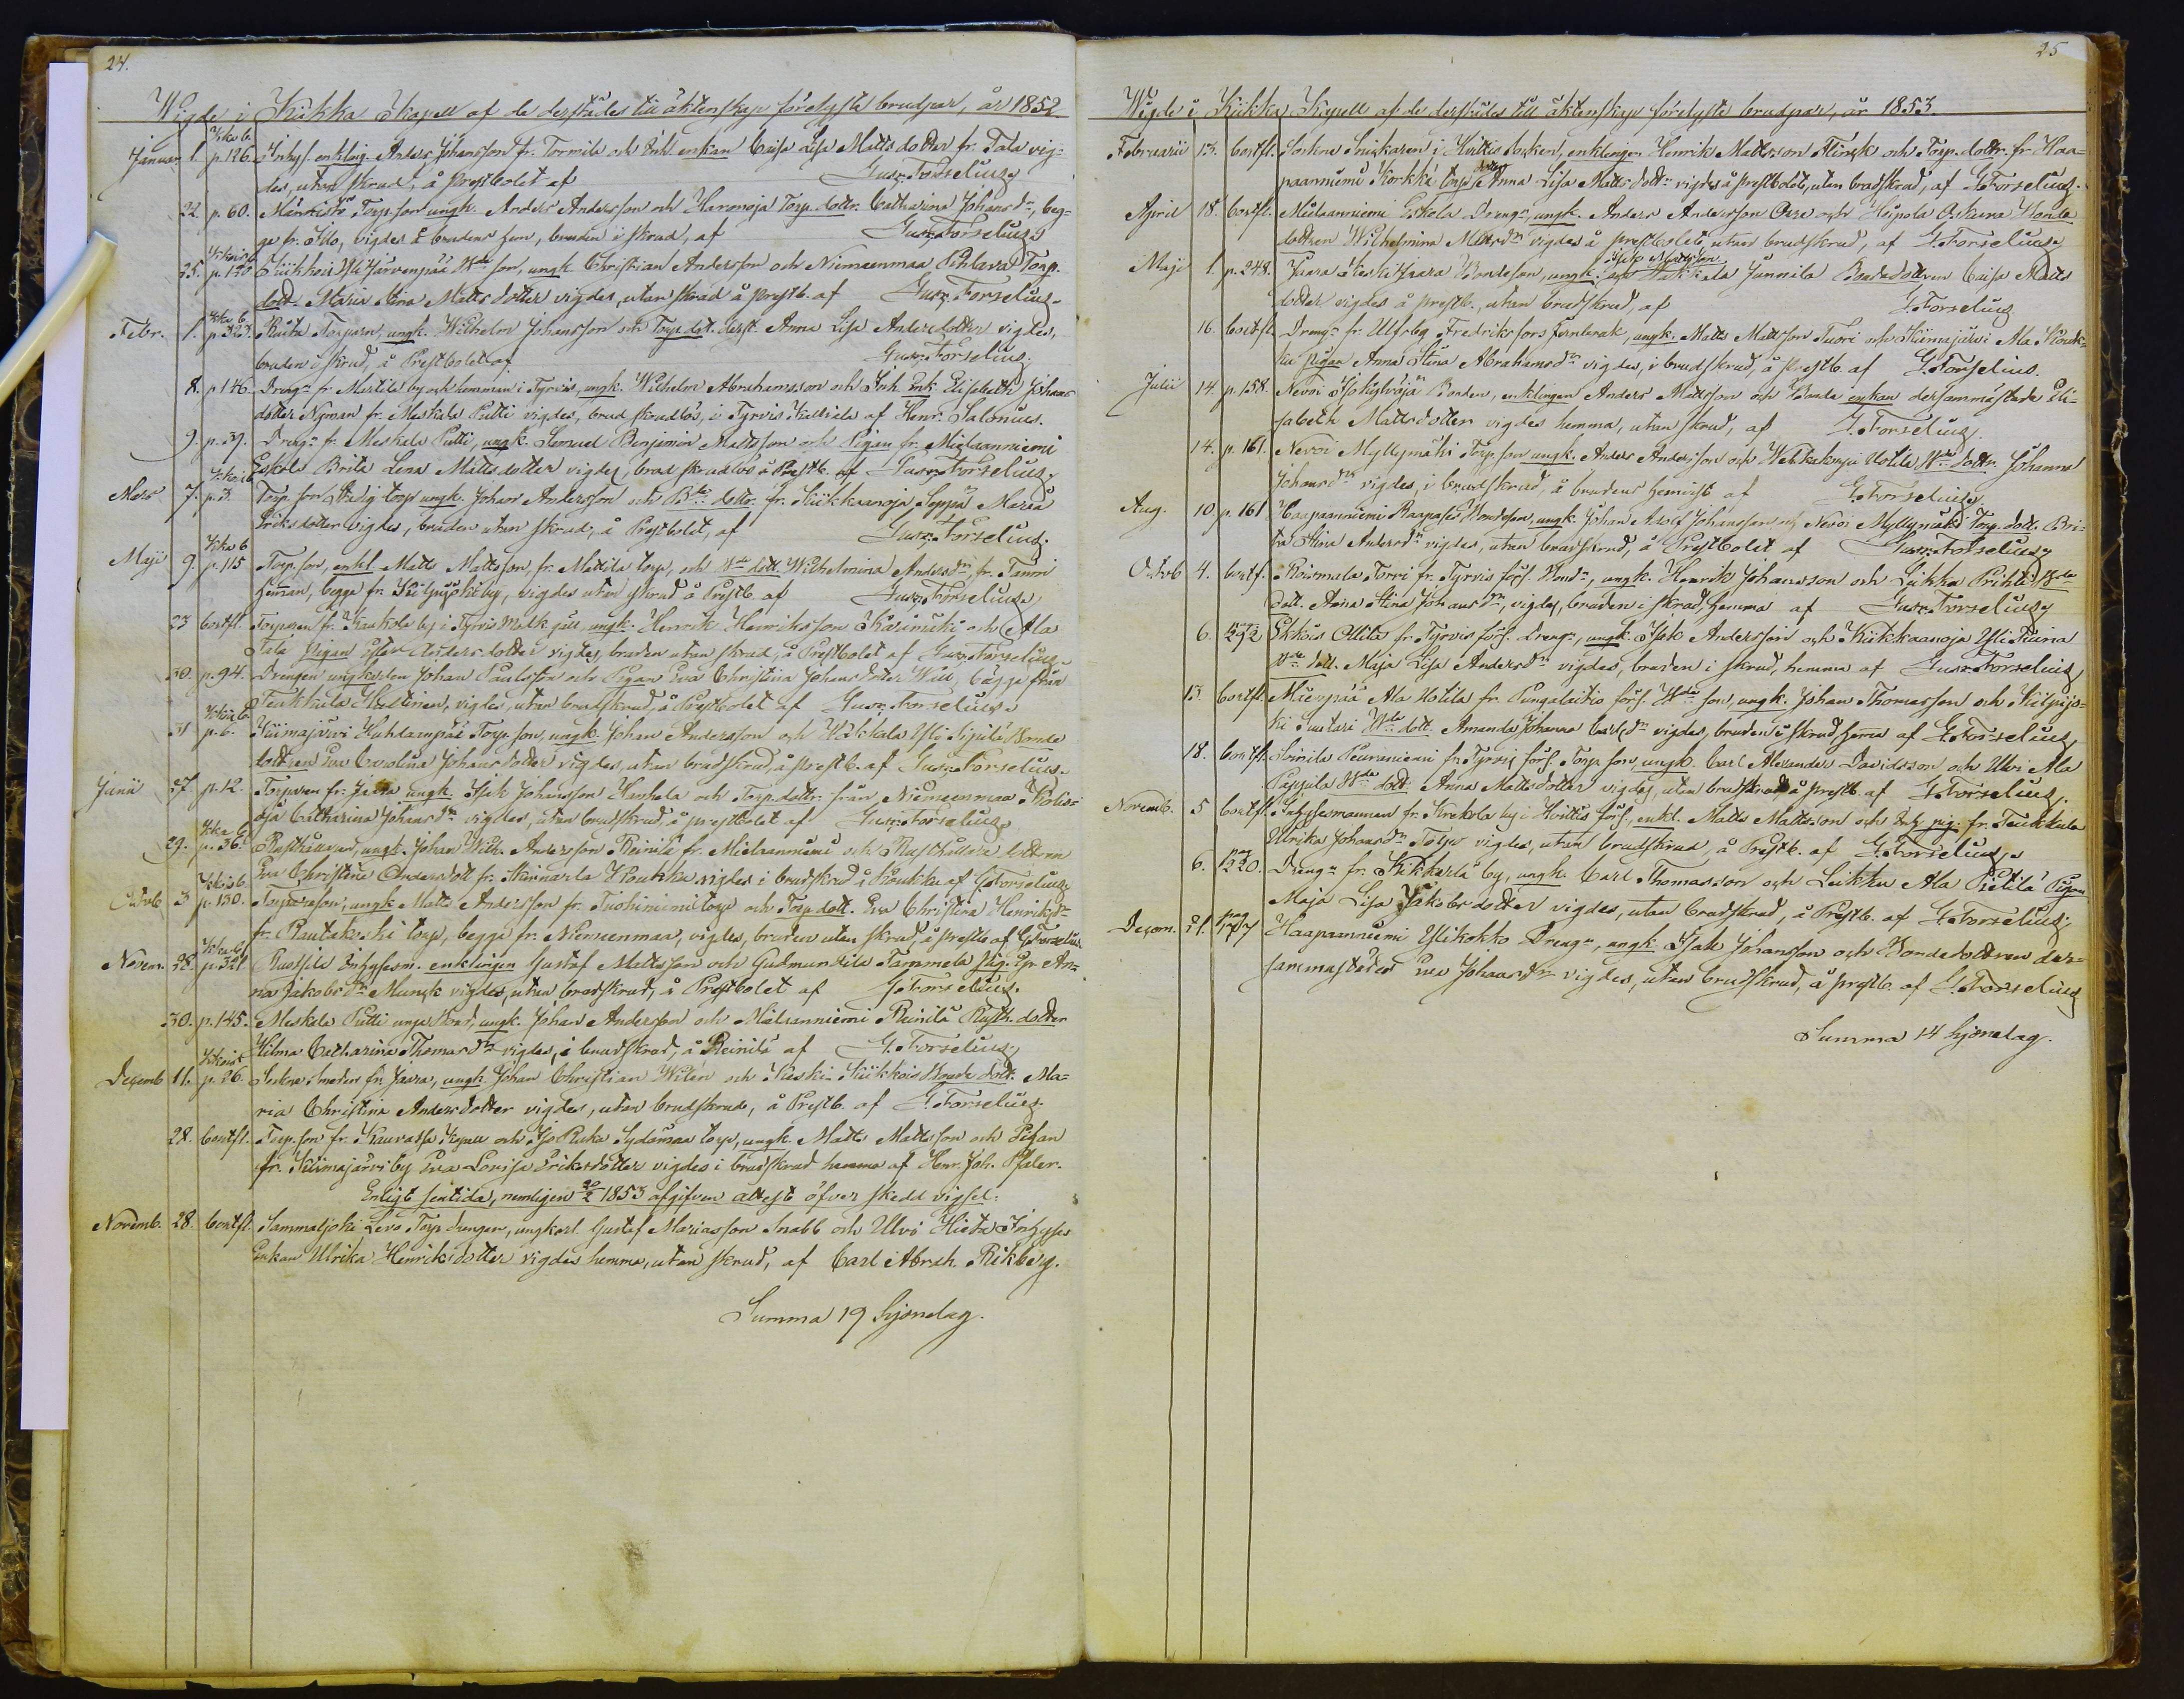 24.
Wigde i Kiikka Kapell af de derstädes till äktenskap förelyste brudpar, år 1852
Januar. 1. p. 126. Inhys. enkling. Anders Johansson fr. Tormila och Inh. enkan Caisa Lisa Matts dotter fr. Tala vig-
des, utan skrud, å Prestbolet af Gust. Forselius.
22. p. 60. Männistö Torp. son ungk. Anders Andersson och Haronoja Torp. dottr. Catharina Johans dr, beg-
ge fr. Illo, vigdes å brudens hem, bruden i skrud, af Gust. Forselius
25. p. 120 Kiikkois Yli Järvenpää Bde son, ungk. Christian Andersson och Niemenmaa Pehlava Torp.
dott. Maria Stina Matts dotter vigdes, utan skrud å prestb. af Gust. Forselius.
Febr. 1. Torparen, ungk. Wilhelm Johansson och Torp. dot. derst. Anna Lisa Anders dotter vigdes,
bruden i skrud, å Prestbolet af Gust. Forselius.
8. p 146. Dreng. fr. Martila by och hemman i Tyrvis, ungk. Wilhelm Abrahamsson och Inh. Enk. Elisabeth Johans
dotter Nyman fr. Meskala Putti vigdes, brud skrudlös, i Tyrvis Kalliala af Henr. Salonius.
9. p. 39. Dreng. fr. Meskala Putti, ungk. Samuel Benjamin Mattsson och Pigan fr. Mielaanniemi
Eskola Brita Lena Matts dotter vigdes, brud skrudlös å Prestb. af Gust. Forselius.
Mars 7. Torp. son torp ungk. Johan Andersson och Bde dottr. fr. Kiikkaanoja Seppä Maria
Eriks dotter vigdes, bruden utan skrud, å Prestbolet, af Gust. Forselius.
Maji 9. p. 115 Torp. son, enkl. Matts Mattsson, fr. Mattila torp, och Bde dott. Wilhelmina Anders dr, fr. Tammi
hemman, begge fr. Kiilpijoki by, vigdes utan skrud å Prestb. af Gust. Forselius
23 bortfl. Torparen fr. Kaukola by i Tyrvis ungk. Henrik Henriksson Karimäki och Ala
Tala pigan Ester Anders dotter vigdes, bruden utan skrud, å Prestbolet af Gust. Forselius
30. p. 94. Drengen ungkarlen Johan Paulsson och Pigan Eva Christina Johans dotter begge från
Teukkula vigdes, utan brudskrud, å Prestbolet af Gust. Forselius
31 p. 6. Kiimajärvi Huhdanpää Torp. son, ungk. Johan Andersson och Wakkala Yli Sipilä Bonde
dottren Eva Carolina Johans dotter vigdes, utan brudskrud, å prestb. af Gust. Forselius.
Junii 27. p. 12. Torparen fr. Jaara ungk. Isak Johansson Hankala och Torp. dottr. från Niemenmaa
oja Catharina Johans dr vigdes, utan brudskrud å prestbolet af Gust. Forselius
29. p. 36. Rusthållaren, ungk. Johan Wilh. Andersson Reinilä fr. Mielaanniemi och Rusthållare dottren
Eva Christina Anders dott. fr. Kinnarla Roukka vigdes i brudskrud i Roukka af G. Forselius
Octob. 3 p. 130. Torparson, ungk. Matts Andersson fr. Tuohiniemi torp och Torp. dott. Eva Christina Henriks dr
fr. Rautakoski torp, begge fr. Niemenmaa, vigdes, bruden utan skrud, å prestb. af G. Forselius
Novem. 28. p. 321 Inhyses m. enklingen Gustaf Mattsson och Gudmundila Tammela pig. An-
na Jakobs dr Munck vigdes, utan brudskrud, å Prestbolet af G. Forselius.
30. p. 145. Meskala Putti unga Bond, ungk. Johan Andersson och Mielaanniemi Reinilä Rusth. dotter
Wilma Catharina Thomas dr vigdes, i brudskrud, å Reinilä af G. Forselius
Decemb. 11. p. 26. Sockne Smeden fr. Jaara, ungk. Johan Christian Witén och Keski-Kiikkois Bonde dott. Ma-
ria Christina Anders dotter vigdes, utan brudskrud, å Prestb. af G. Forselius.
28. bortfl. Torp. son fr. Kauvatsa Kapell och Iso Ruka Sydänsaa torp, ungk. Matts Mattsson och Pigan
fr. Kiimajärvi by Eva Lovisa Eriksdotter vigdes i brudskrud hemma af Henr. Joh. Pfaler.
Enligt sentida, nemligen 20/2 1853 afgifven attest öfver skedd vigsel.
Novemb. 28. bortfl. Sammaljoki Levo Torp drengen, ungkarl Gustaf Mariasson Snabb och Ulvi Hieta Inhyses
Enkan Ulrika Henriksdotter vigdes hemma, utan skrud, af Carl Abrah. Rikberg.
Summa 19 hjonelag.
25
Wigde i Kiikka Kapell af de derstädes till äktenskap förelyste brudpar, år 1853.
Februarii 13. bortfl. Sockne Snickaren i Hvittis Socken, enklingen Henrik Mattsson Flinck och Torp. dottr. fr. Haa-
paaniemi Korkki torp Anna Lisa Matts dottr vigdes å prestbolet, utan brudskrud, af G. Forselius.
April 18. bortfl. Mielaanniemi Eskola Dreng, ungk. Anders Andersson Orre och Heipola Bonde
dottren Wilhelmina Matts dr vigdes å prestbolet, utan brudskrud, af G. Forselius.
Maji 1. p. 248. Jaara Keski Jaara Bondeson, ungk. Isak Mattsson och Junnila Bondedottren Caisa Matts
dotter vigdes å prestb., utan brudskrud, af G. Forselius.
16. bortfl. Dreng fr. Ulfsby Fredriksfors jernbruk, ungk. Matts Mattsson Tuori och Kiimajärvi Ala Kouk-
ku pigan Anna Stina Abrahams dr vigdes, i brudskrud, å prestb. af G. Forselius.
Julii 14. p. 158. Nevoi Isokylväjä Bonden, enklingen Anders Mattsson och Bonde enkan dersammastädes Eli-
sabeth Matts dotter vigdes hemma, utan skrud, af G. Forselius.
14. p. 161. Nevoi Myllymäki Torp. son ungk. Anders Andersson och Uotila Bde dottr. Johanna
Johans dr vigdes, i brudskrud, å brudens hemvist af G. Forselius
Aug. 10. p. 161 Haapaaniemi Raapas Bondeson, ungk. Johan Adolf Johansson och Nevoi Myllymäki Torp. dott. Bri-
ta Stina Anders dr vigdes, utan brudskrud, å Prestbolet af Gust. Forselius
Octob. 4. bortfl. Roismala Torri fr. Tyrvis förs. Bond, ungk. Henrik Johansson och Leikku Prihti Bde
dott. Anna Stina Johans dr, vigdes, bruden i skrud, hemma af Gust. Forselius
6. pag 292 Ekkois Ollila fr. Tyrvis förs. dreng, ungk. Isak Andersson och Kiikkaanoja Yli
Bde dott. Maja Lisa Anders dr vigdes, bruden i skrud, hemma af Gust. Forselius
13. bortfl. Mierspää Ala Uotila fr. Pungalaitio förs. Bde son, ungk. Johan Thomasson och Kiilpijo-
ki Suutari Bde dott. Amanda Johanna Carls dr vigdes, bruden i skrud, hema af G. Forselius
18. bortfl. Peuraniemi fr. Tyrvis förs. Torp. son, ungk. Carl Alexander Davidsson och Ulvi Ala
Pappila Bde dott. Anna Matts dotter vigdes, utan brudskrud å prestb. af G. Forselius.
Novemb. 5 bortfl. Inhyses mannen fr. Kirkola by i Hvittis förs., enkl. Matts Mattsson och Inh. pig. fr. Teukkula
Ulrika Johans dr Törn vigdes, utan brudskrud, å Prestb. af G. Forselius.
6. pag 220. Dreng fr. Kikkerlä by, ungk. Carl Thomasson och Leikku Ala Pietilä Pigan
Maja Lisa Jakobs dotter vigdes, utan brudskrud, å Prestb. af G. Forselius.
Decem. 21. Haapaaniemi Ylikokko Dreng, ungk. Isak Johansson och Bondedottren der-
sammastädes Eva Johans dr vigdes, utan brudskrud, å prestb. af G. Forselius
Summa 14 hjonelag.